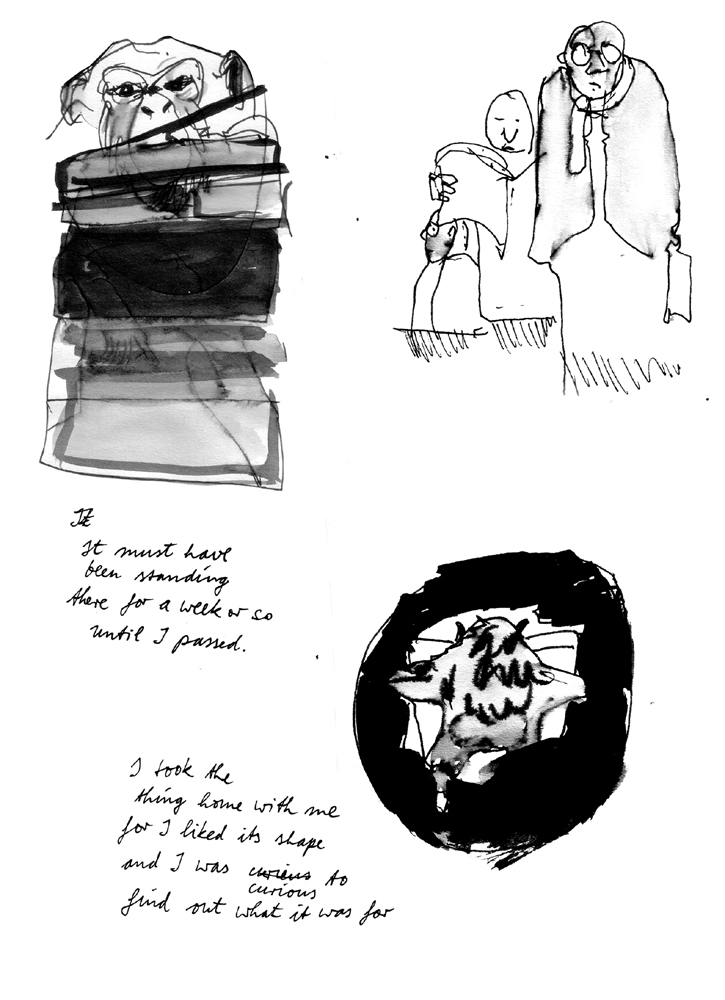 It
It must have
been standing
there for a week or so
until I passed.
I took the
thing home with me
for I liked its shape
and I was curious to
curious
find out what it was for